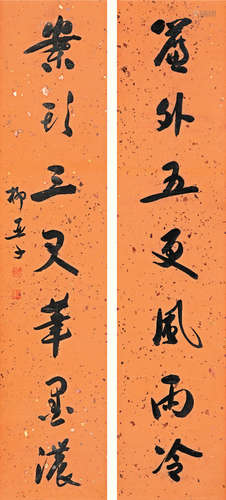 簾外五更風雨冷
案頭三又筆墨濃
柳亞子